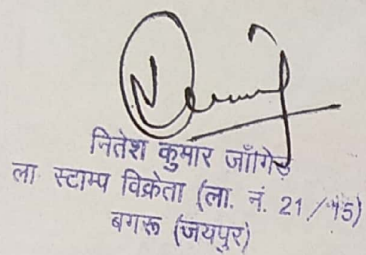 नितेश कुमार जाँगिड़
ला. स्टाम्प विक्रेता (ला. नं. 21/15)
बगरू (जयपुर)